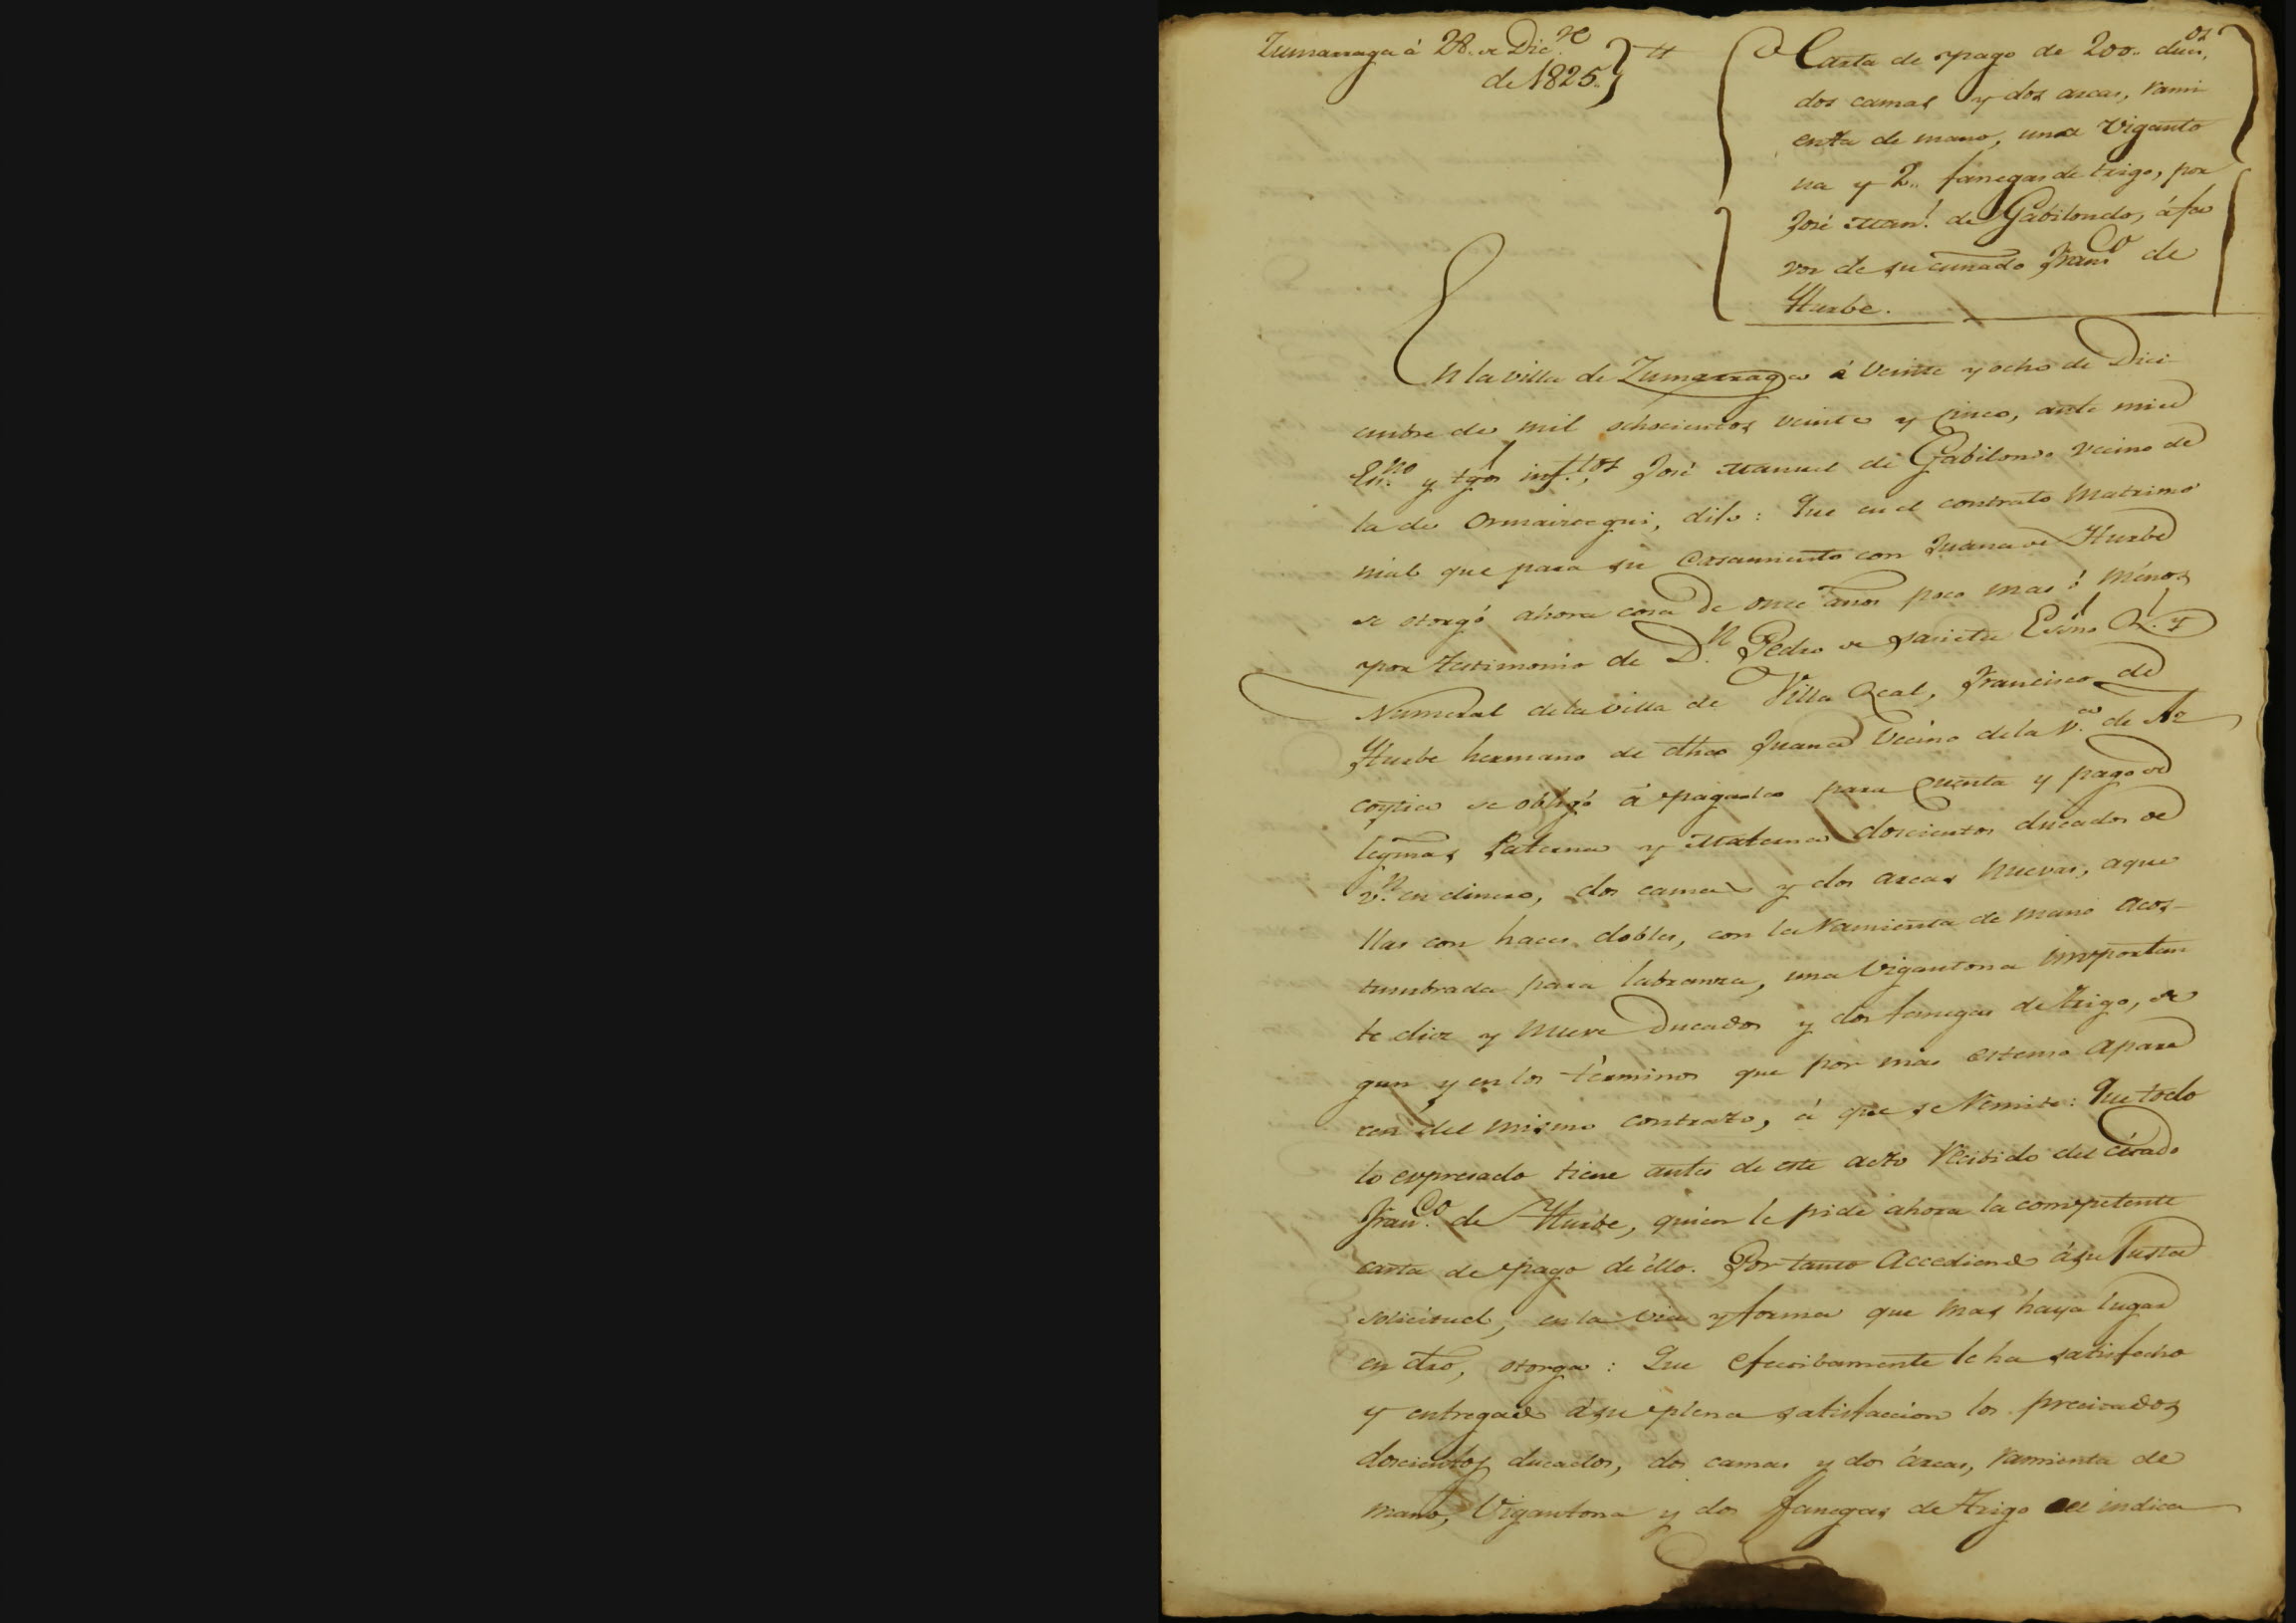 Zumarraga á 28. de Dic.re
de 1825.
Carta de pago de 200. duc.os,
dos camas y dos arcas, rami
enta de mano, una Viganto
na y 2. fanegas de trigo, por
José Man.l de Gabilondo, á fa
vor de su cuñado Fran.co de
Yturbe.
En la villa de Zumarraga á veinte y ocho de Dici
embre de mil ochocientos veinte y cinco, ante mi el
Es.no y tgos inf.tos José Manuel de Gabilondo vecino de
la de Ormaiztegui, dijo: Que en el contrato Matrimo
nial que para su Casamiento con Juana de Yturbe
se otorgó ahora cosa de once años poco mas ó ménos
por testimonio de D.n Pedro de Esno R.l y
Numeral de la villa de Villa Real, Francisco de
Yturbe hermano de dha Juana vecino de la v.a de Az
coytia se obligó á pagarles para Cuenta y pago de
legmas Paterna y Materna doscientos ducados de
v.n en dinero, dos camas y dos arcas nuevas, aque
llas con haces dobles, con la ramienta de mano acos-
tumbrada para labranza, una Vigantona importan
te diez y nueve Ducados y dos fanegas de trigo, se
gun y en los términos que por mas estenso apare
cerá del mismo contrato, á que se remite: Que todo
lo expresado tiene antes de este acto recibido del citado
Fran.co de Yturbe, quien le pide ahora la competente
carta de pago de éllo. Por tanto Accediendo á su justa
solicitud, en la via y forma que mas haya lugar
en dro, otorga: Que efectibamente le ha satisfecho
y entregado á su plena satisfaccion los precitados
doscientos ducados, dos camas y dos árcas, ramienta de
mano, Vigantona y dos fanegas de trigo indica